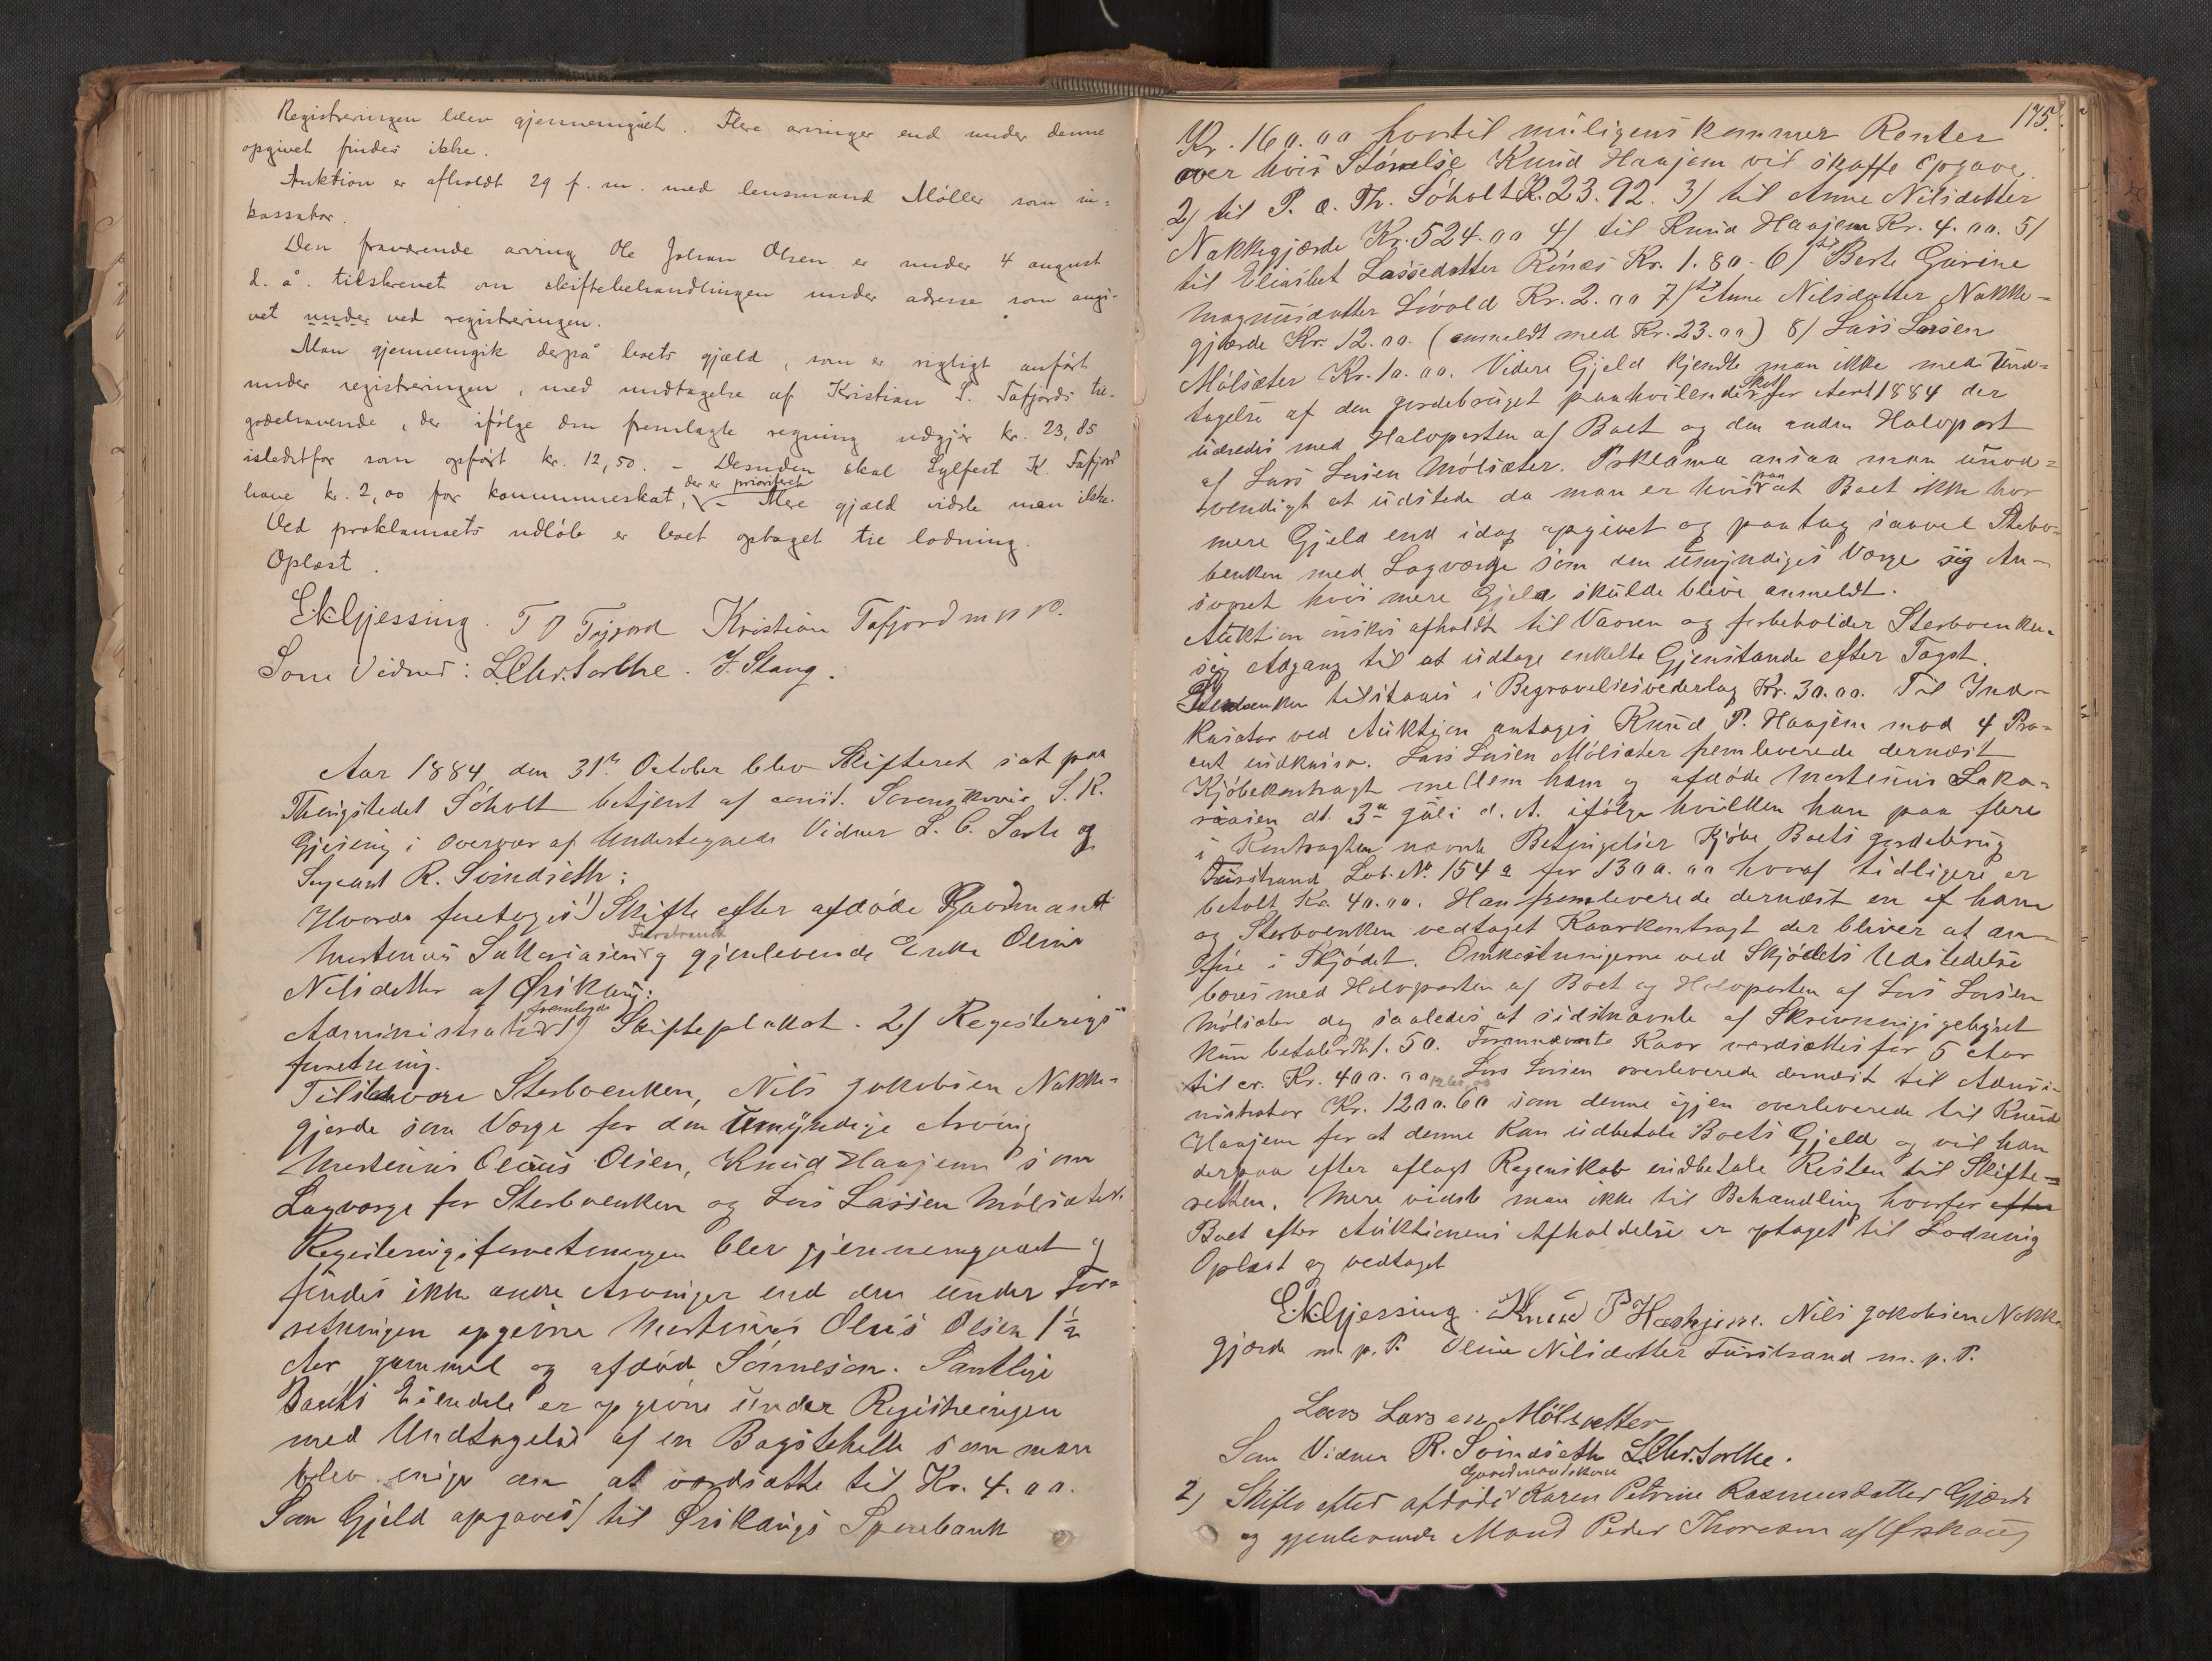 Registreringen blev gjennemgået. Flere arvinger end under denne
opgivet findes ikke.
Auktion er afholdt 29 f. m. med lensmand Møller som in-
kassator.
Den fraværende arving Ole Johan Olsen er under 4 august
d. å. tilskrevet om skiftebehandlingen under adresse som angi-
vet under ved registreringen.
Man gjennemgik derpå boets gjæld, som er rigtigt anført
under registreringen, med undtagelse af Kristian S. Tafjords til-
godehavende, der ifølge den fremlagte regning udgjør kr. 23,85
istedetfor som opført kr. 12,50. – Desuden skal Sylfest K. Tafjord
have kr. 2,00 for kommuneskat, der er prioriteret – Mere gjæld vidste man ikke.
Ved proklamaets udløb er boet optaget til lodning.
Oplæst.
E.K. Gjessing. T O Tafjord Kristian Tafjord m p P.
Som Vidner: L. Chr. Sorthe. J. Stang.
Aar 1884 den 31te October blev Skifteret sat paa
Thingstedet Søholt betjent af const. Sorenskriver E. K.
Gjessing i Overvær af Undertegnede Vidner L. C. Sorte og
Sergeant R. Svindseth:
Hvorda foretoges 1) Skifte efter afdøde Gaardmand
Martinus Sakariasen Furstrand og gjenlevende Enke Oline
Nilsdatter af Ørskoug:
Administrator fremlagde 1) Skifteplakat. 2) Registerings
forretning.
Tilstede vare Sterboenken, Nils Jakobsen Nakke-
gjerde som Verge for den Umyndige Arving
Martinus Olaus Olsen, Knud Haajem som
Lagverge for Sterboenken og Lars Larsen Mølsæter.
Registeringsforretningen blev gjennemgaaet og
findes ikke andre Arvinger end den under For-
retningen opgivne Martinus Olaus Olsen 1½
Aar gammel og afdød Sønnesøn. Samtlige
Boets Eiendele er opgivne under Registreringen
med Undtagelse af en Bagstehelle som man
blev enige om at værdsætte til Kr. 4.00.
Som Gjeld opgaves 1) til Ørskougs Sparebank
175.
Kr. 160.00 hvortil muligens kommer Renter
over hvis Størrelse Knud Haajem vil skaffe Opgave.
2) til P. O. Th. Søholt Kr. 23.92. 3) til Anne Nilsdatter
Nakkegjærde Kr. 524.00 4) til Knud Haajem Kr. 4.00. 5)
til Elisabet Lassedatter Rønæs Kr. 1.80. 6) til Berte Gurine
Magnusdatter Livold Kr. 2.00 7) til Anne Nilsdatter Nakke-
gjærde Kr. 12.00. (anmeldt med Kr. 23.00) 8) Lars Larsen
Mølsæter Kr. 10.00. Videre Gjeld kjendte man ikke med Und-
tagelse af den gordebruget paahvilende Skat for Aaret 1884 der
udredes med Halvparten af Boet og den anden Halvpart
af Lars Larsen Mølsæter. Proklama ansaa man unød-
vendigt at udstede da man er vis paa at Boet ikke har
mere Gjeld end idag opgivet og paatog saavel Sterbo-
benken med Lagverge som den umyndiges Verge sig An-
svaret hvis mere Gjeld skulde blive anmeldt.
Auktion ønskes afholdt til Vaaren og forbeholder Sterboenken
sig Adgang til at udtage enkelte Gjenstande efter Tagst.
Sterboenken tilstaaes i Begravelsesvederlag Kr. 30.00. Til Ind-
kasator ved Auktion antages Knud P. Haajem mod 4 Pro-
cent indkasso. Lars Larsen Mølsæter fremleverede dernæst
Kjøbekontragt mellem ham og afdøde Martinus Saka-
riasen dt. 3die Juli d. A. ifølge hvilken han paa flere
i Kontragten nævnte Betingelser Kjøbe Boets gordebrug
Furstrand Løb. No. 154 a for 1300.00 hvoraf tidligere er
betalt Kr. 40.00. Han fremleverede dernæst en af ham
og Sterboenken vedtaget Kaarkontragt der bliver at an-
føre i Skjødet. Omkostningerne ved Skjødets Udstedelse
bæres med Halvparten af Boet og Halvparten af Lars Larsen
Mølsæter dog saaledes at sidstnævnte af Skrivningsgebyret
kun betaler Kr. 1.50. Fornævnte Kaar værdsættes for 5 Aar
til cr. Kr. 400.00. Lars Larsen overleverede dernæst til Admi-
nistrator Kr. 1200.60 1260,00 som denne igjen overleverede til Knud
Haajem for at denne kan udbetale Boets Gjeld og vil han
derpaa efter aflagt Regenskab indbetale Resten til Skifte-
retten. Mere vidste man ikke til Behandling hvorfor efter
Boet efter Auktionens Afholdelse er optaget til Lodning
Oplæst og vedtaget
E.K. Gjessing. Knud P Haahjem. Nils Jakobsen Nakke
gjærde m. p. P. Oline Nilsdatter Furstrand m. p. P.
Lars Larsen Mölsætter
Som Vidner R. Svindseth L. Chr. Sorthe.
2) Skifte efter afdøde Gaardmandskone Karen Petrine Rasmusdatter Gjærde
og gjenlevende Mand Peder Thoresen af Ørskoug